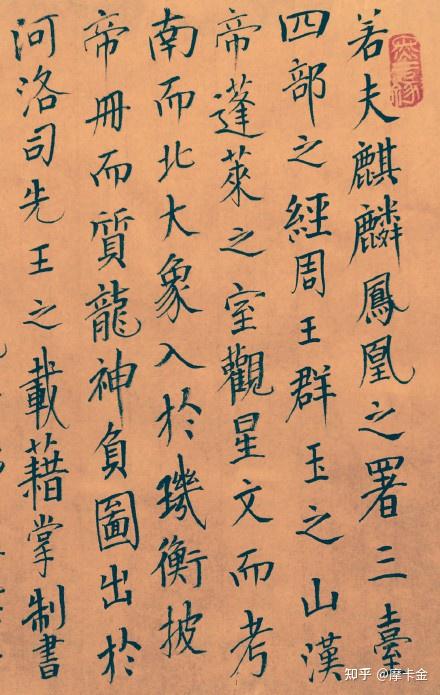 若夫麒麟鳳凰之署三臺
四部之經周王群玉之山漢
帝蓬萊之室觀星文而考
南而北大象入於璣衡披
帝冊而質龍神負圖出於
河洛司先王之載籍掌制書
知乎 @摩卡金